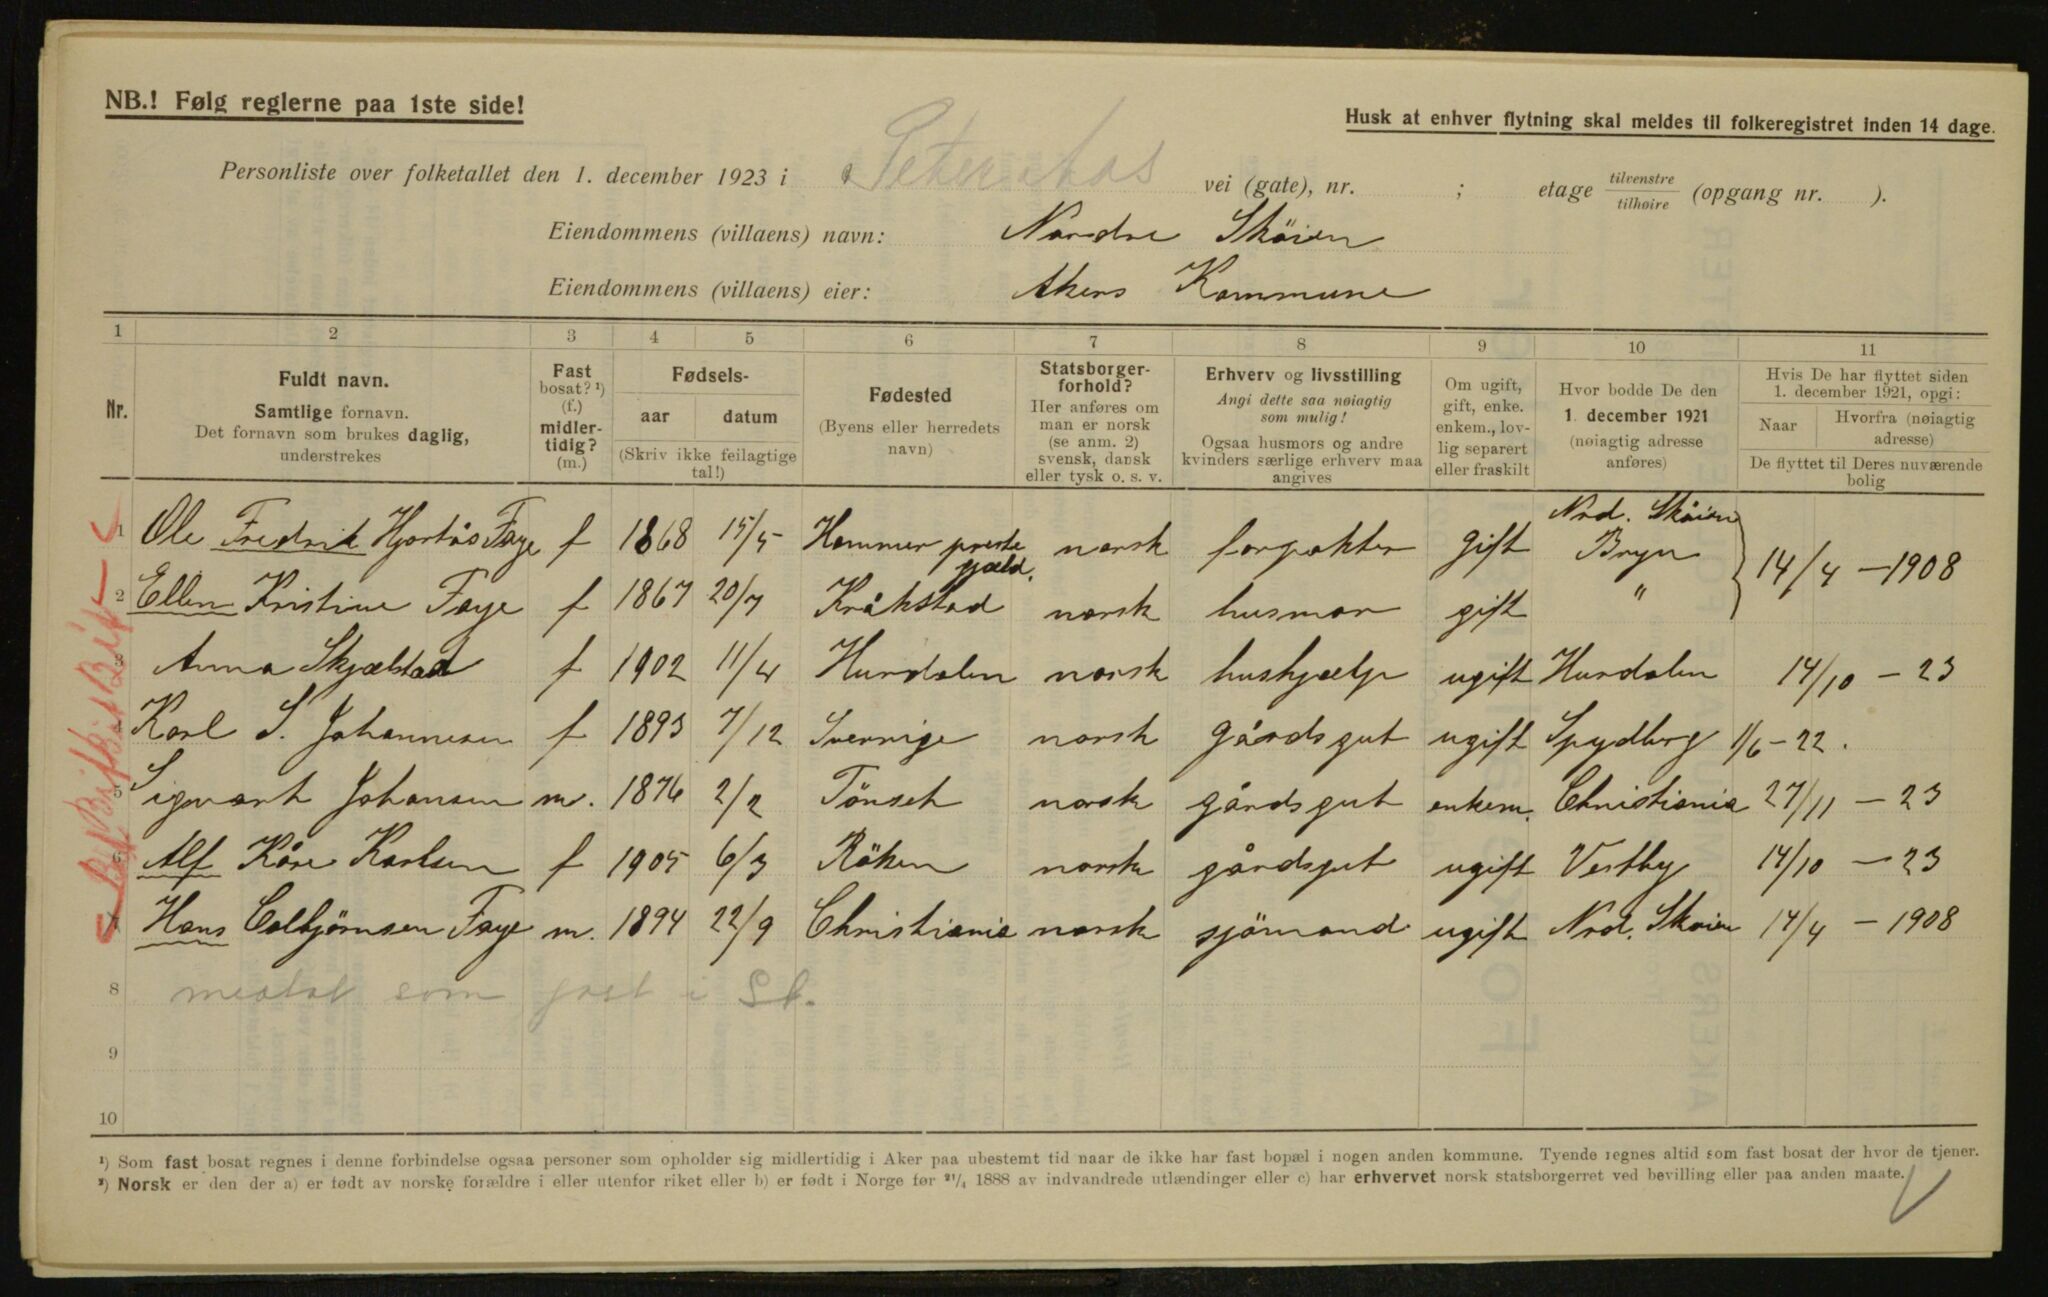 NB.! Følg reglerne paa 1ste side!
Husk at enhver flytning skal meldes til folkeregistret inden 14 dage.
Personliste over folketallet den 1. december 1923 i vei (gate), nr. ; etage tilvenstre tilhøire (opgang nr. ).
Eiendommens (villaens) navn: Nordre Sköien
Eiendommens (villaens) eier: Akers Kommune
1 2 3 4 5 6 7 8 9 10 11
Nr.
Fuldt navn.
Samtlige fornavn.
Det fornavn som brukes daglig,
understrekes
Fast
bosat? ¹)
(f.)
midler-
tidig?
(m.)
Fødsels-
aar datum
(Skriv ikke feilagtige
tal!)
Fødested
(Byens eller herredets
navn)
Statsborger-
forhold?
Her anføres om
man er norsk
(se anm. 2)
svensk, dansk
eller tysk o. s. v.
Erhverv og livsstilling
Angi dette saa nøiagtig
som mulig!
Ogsaa husmors og andre
kvinders særlige erhverv maa
angives
Om ugift,
gift, enke.
enkem., lov-
lig separert
eller fraskilt
Hvor bodde De den
1. december 1921
(nøiagtig adresse
anføres)
Hvis De har flyttet siden
1. december 1921, opgi:
Naar Hvorfra (nøiagtig
adresse)
De flyttet til Deres nuværende
bolig
1 Ole Fredrik Hjortås Faye f 1868 15/5 Hammer preste gjæld. norsk forpakter gift Nrd. Sköien Bryn 14/4 – 1908
2 Ellen Kristine Faye f 1867 20/7 Kråkstad norsk husmor gift "
3 Anna Skjælstad f 1902 11/4 Hurdalen norsk hushjælp ugift Hurdalen 14/10 – 23
4 Karl S. Johannesen f 1893 7/12 Sverrige norsk gårdsgut ugift Spydberg 1/6 – 22.
5 Sigvart Johansen m. 1876 2/2 Tönset norsk gårdsgut enkem. Christiania 27/11 – 23
6 Alf Kåre Karlsen f 1905 6/3 Röken norsk gårdsgut ugift Vestby 14/10 – 23
7 Hans Colbjörnsen Faye m. 1894 22/9 Christiania norsk sjömand ugift Nrd. Skøien 14/4 – 1908
8 som fast i
9
10
¹) Som fast bosat regnes i denne forbindelse ogsaa personer som opholder sig midlertidig i Aker paa ubestemt tid naar de ikke har fast bopæl i nogen anden kommune. Tyende regnes altid som fast bosat der hvor de tjener.
²) Norsk er den der a) er født av norske forældre i eller utenfor riket eller b) er født i Norge før 21/4 1888 av indvandrede utlændinger eller c) har erhvervet norsk statsborgerret ved bevilling eller paa anden maate.